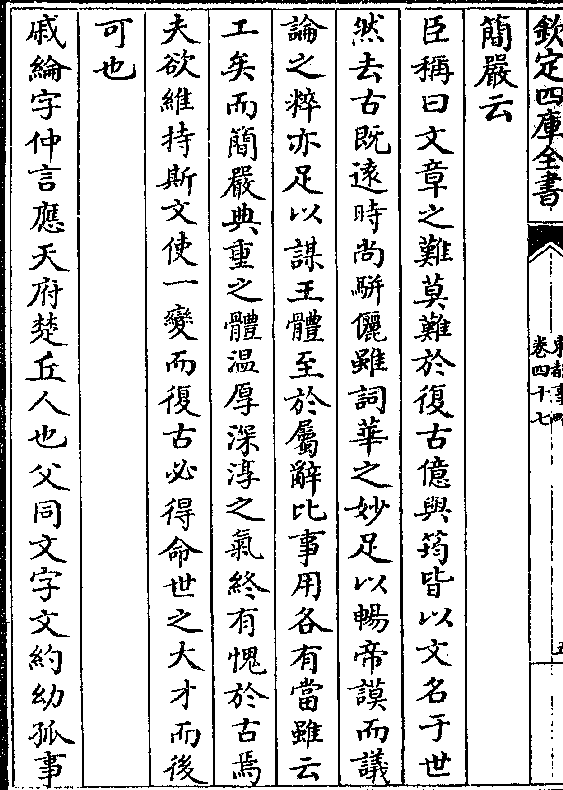 欽定四庫全書
東都事略
卷四十七
五
簡嚴云
臣稱曰文章之難莫難於復古億與筠皆以文名于世
然去古既逺時尚駢儷雖詞華之妙足以暢帝謨而議
論之粹亦足以謀王體至於屬辭比事用各有當雖云
工矣而簡嚴典重之體溫厚深淳之氣終有愧於古焉
夫欲維持斯文使一變而復古必得命世之大才而後
可也
戚綸字仲言應天府楚丘人也父同文字文約幼孤事